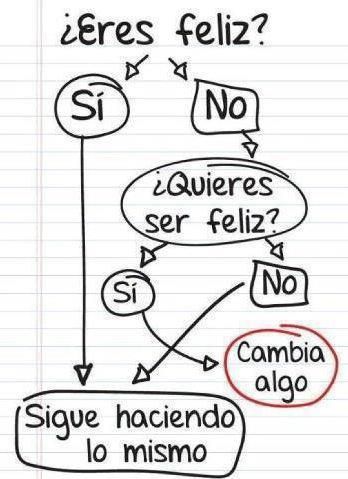 ¿Eres feliz?
Sí
No
¿Quieres
ser feliz?
Sí
No
Cambia
algo
Sigue haciendo
lo mismo